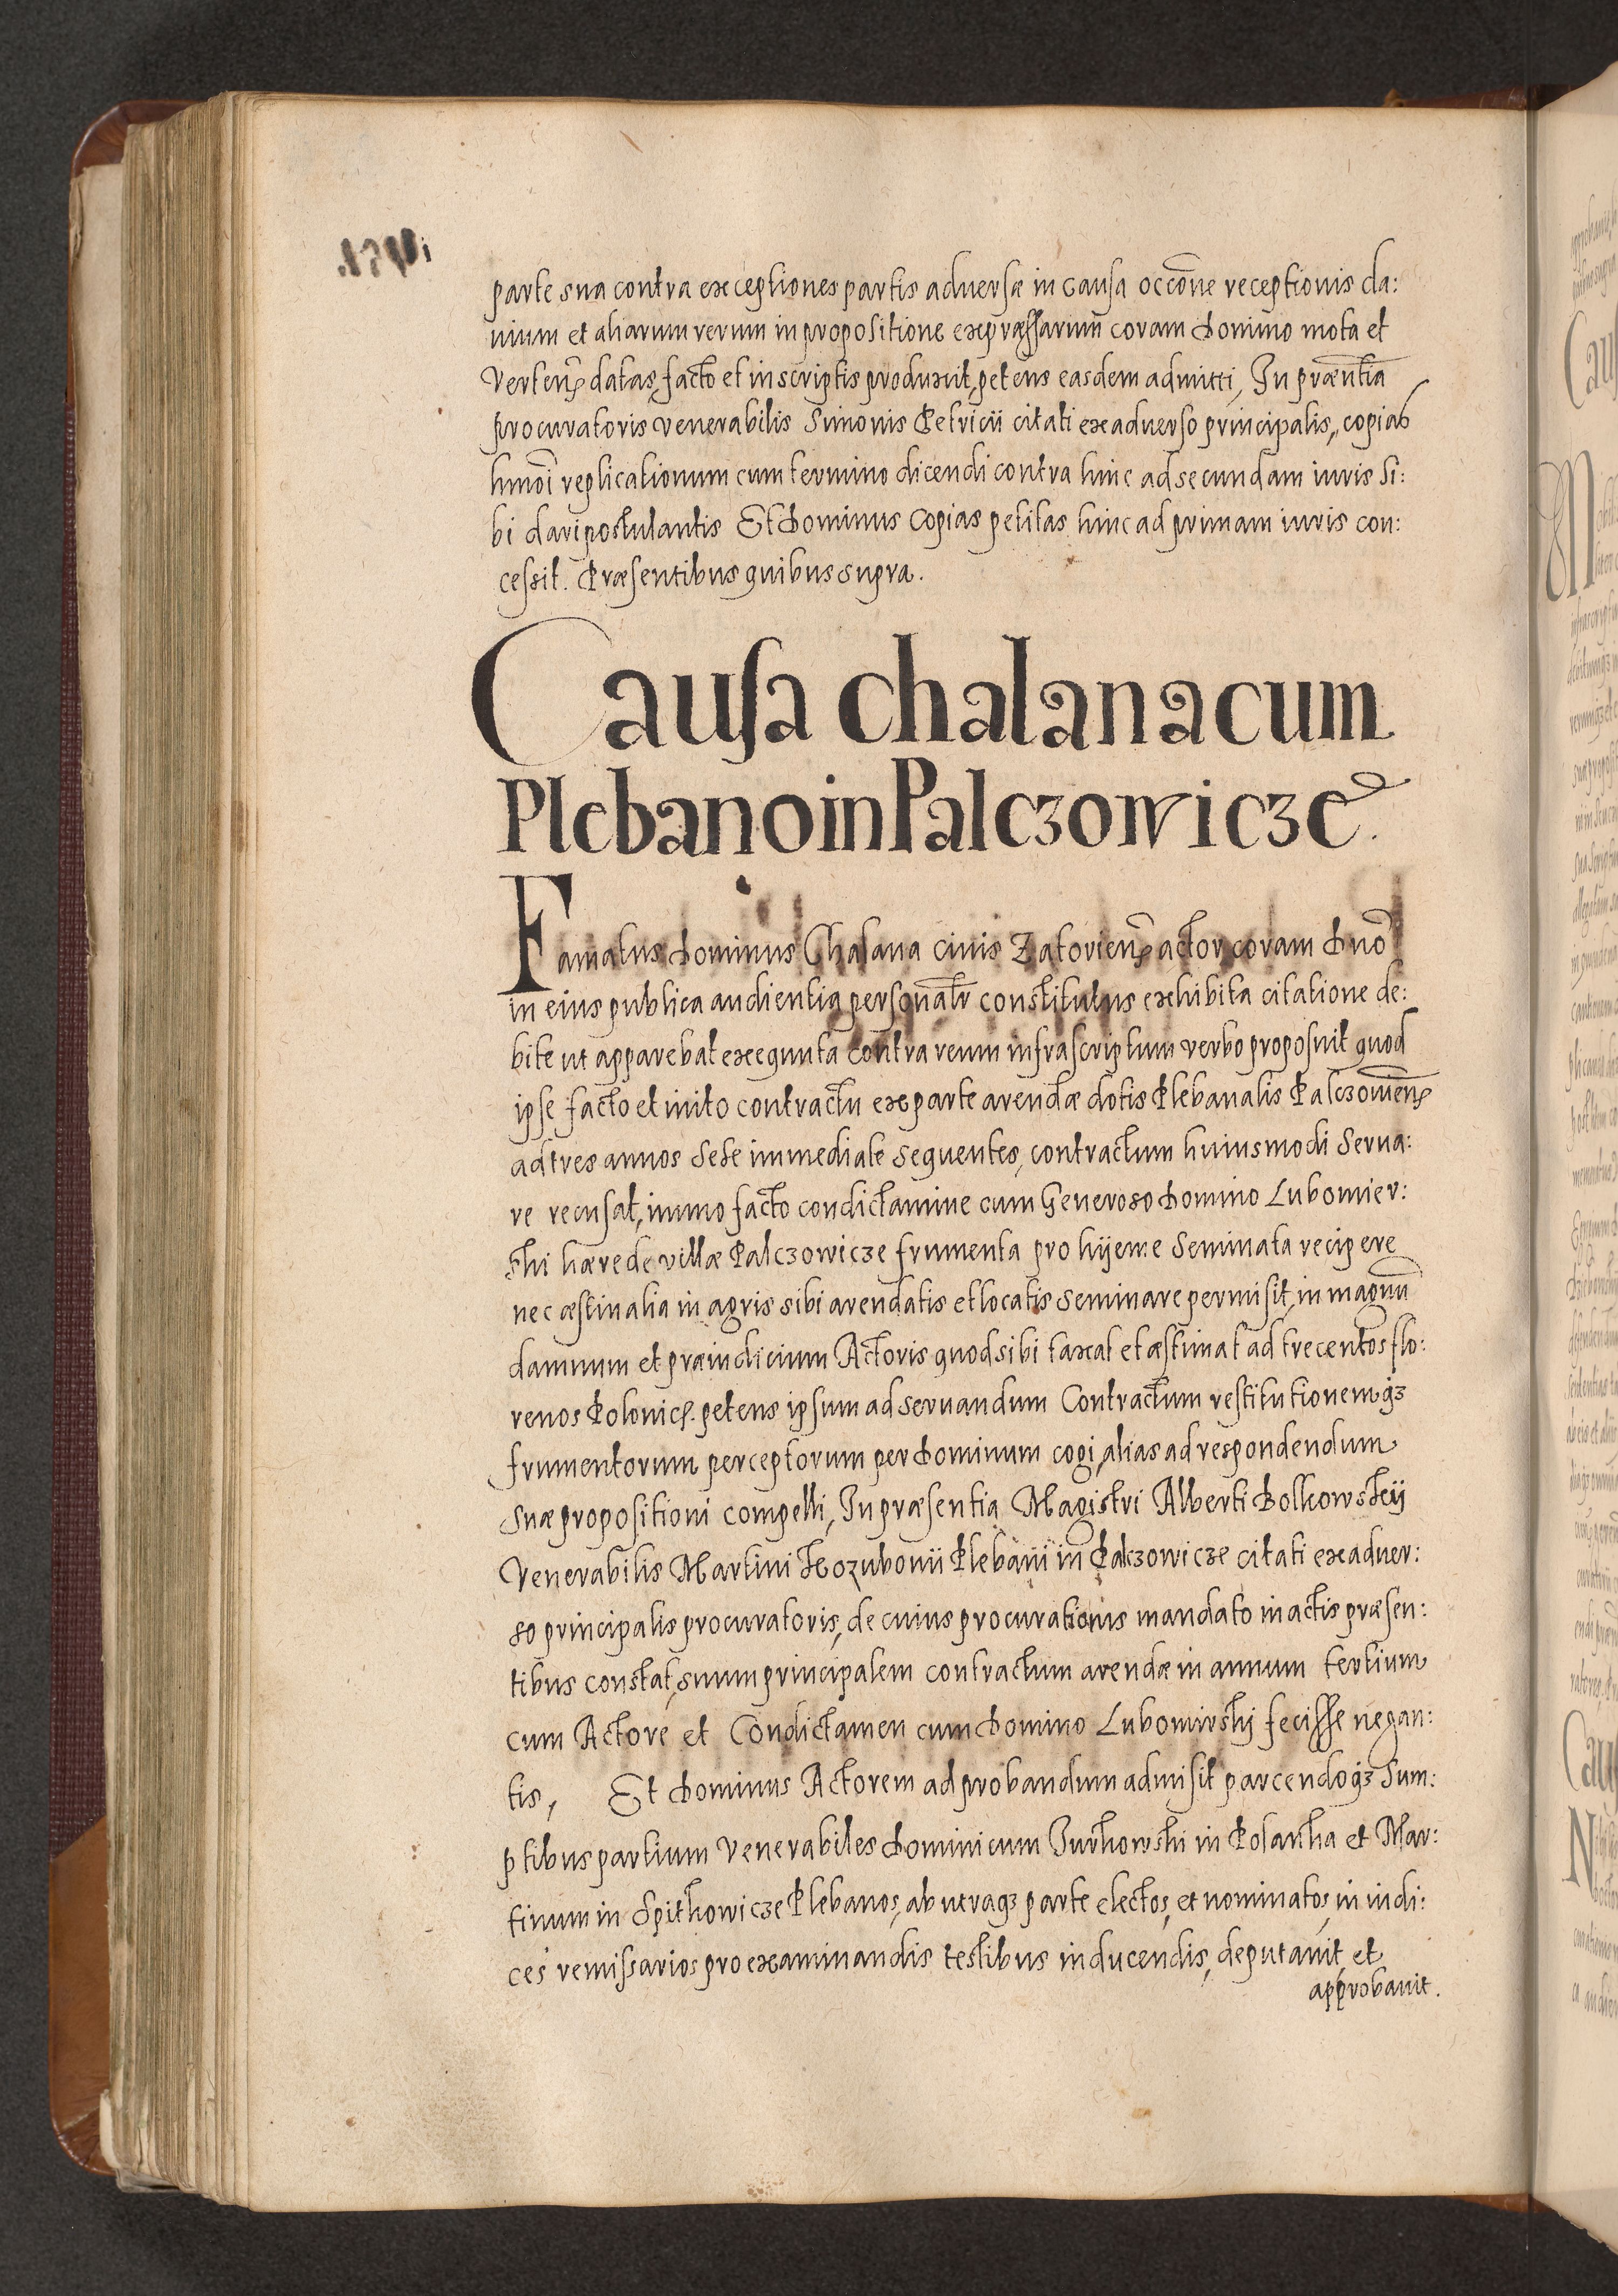 parte sua contra exceptiones partis aduersæ in causa occōne receptionis cla:
uium et aliarum rerum in propositione expræssarum coram Domino mota et
verten̄ datas, facto et in scriptis produxit, petens easdem admitti, In præntia
procuratoris venerabilis Simonis Petricii citati ex aduerso principalis, copias
hmōi replicationum cum termino dicendi contra hinc ad secundam iuris si:
bi dari postulantis Et Dominus copias petitas hinc ad primam iuris con:
cessit. Præsentibus quibus supra.
Causa Chalana cum
Plebano in Palczowicze.
Famatus Dominus Chalana ciuis Zatorien̄ actor, coram Dnō
in eius publica audientia personalr constitutus exhibita citatione de:
bite ut apparebat exequuta contra reum infrascriptum verbo proposuit quod
ipse facto et inito contractu ex parte arendæ dotis Plebanalis Palczowien̄
ad tres annos sese immediate sequentes, contractum huiusmodi serua:
re recusat, immo facto condictamine cum Generoso Domino Lubomier:
ski hærede villæ Palczowicze frumenta pro hijeme seminata recipere
nec æstiualia in agris sibi arendatis et locatis seminare permisit, in magnū
damnum et præiudicium Actoris quod sibi taxat et æstimat ad trecentos flo:
renos Polonic. petens ipsum ad seruandum Contractum restitutionemqz
frumentorum perceptorum per Dominum cogi, alias ad respondendum
suæ propositioni compelli, In præsentia Magistri Alberti Bolkowskij
Venerabilis Martini Kozubonii Plebani in Palczowicze citati ex aduer:
so principalis procuratoris, de cuius procurationis mandato in actis præsen:
tibus constat, suum principalem contractum arendæ in annum tertium
cum Actore et Condictamen cum Domino Lubomirski fecisse negan:
tis, Et Dominus Actorem ad probandum admisit parcendoqz sum:
ptibus partium Venerabiles Dominicum Jurkowski in Polanka et Mar:
tinum in Spitkowicze Plebanos, ab utraqz parte electos, et nominatos, in iudi:
ces remissarios pro examinandis testibus inducendis, deputauit, et
approbauit.